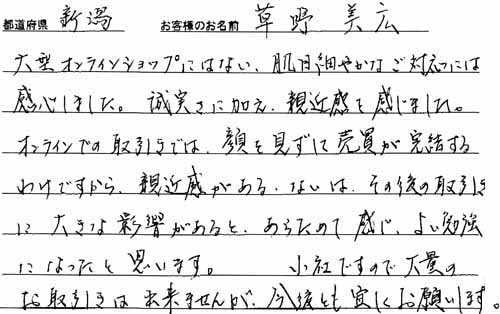 都道府県 新潟 お客様のお名前 草野 美広
大型オンラインショップにはない、肌目細やかなご対応には
感心しました。誠実さに加え、親近感を感じました。
オンラインでの取引きでは、顔を見ずに売買が完結する
わけですから、親近感がある・ないは、その後の取引き
に大きな影響があると、あらためて感じ、よい勉強
になったと思います。 小社ですので大量の
お取引きは出来ませんが、今後とも宜しくお願いします。